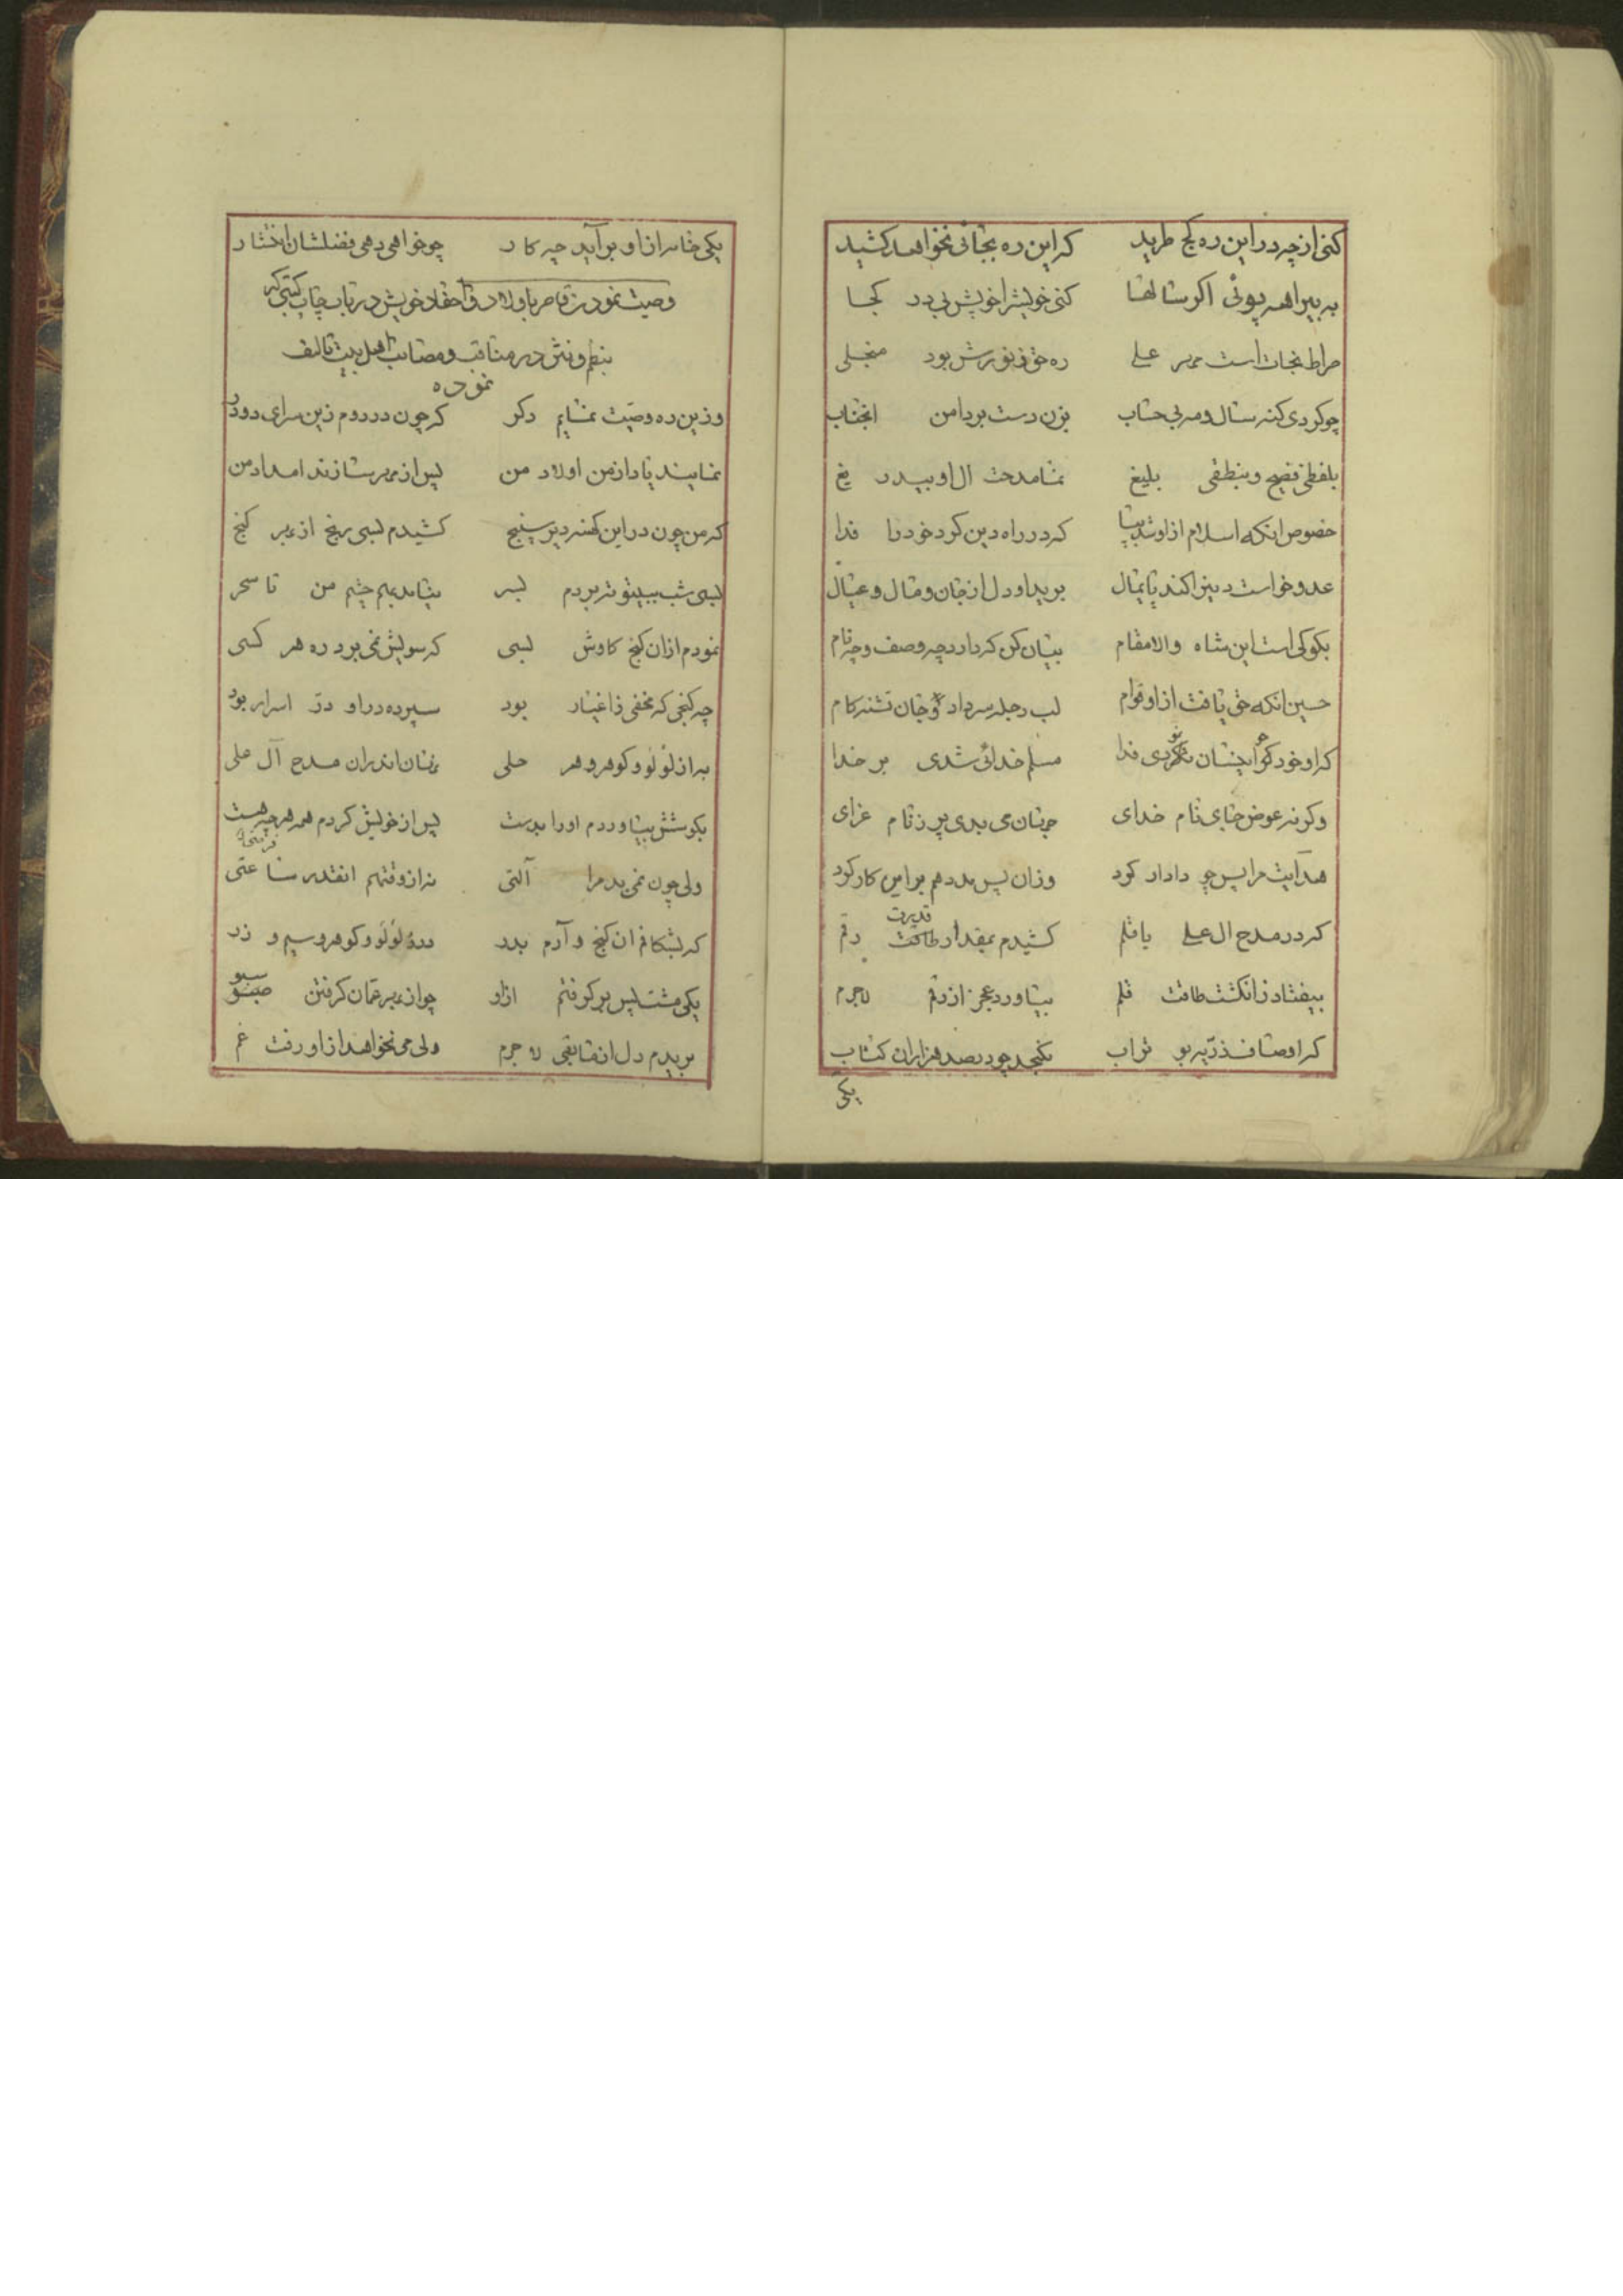 کنی از چه در این ره کج طرید که این ره بجائی نخواهد کشید
به بیراهه پوئی اکر سالها کنی خویش را خویش بی در کجا
صراط نجات است مهر علی ره حق ز نورش بود منجلی
چو کردی کنه سال و مه بی حساب بزن دست بر دامن انجناب
بلفظی فصیح و بنطقی بلیغ نما مدحت ال او بیدریغ
خصوص انکه اسلام از او شد بپا که در راه دین کرد خود را فدا
عدو خواست دین را کند پایمال برید او دل از جان و مال و عیال
بکو کی است این شاه والا مقام بیان کن که دارد چه وصف و چه نام
حسین انکه حق یافت از او قوام لب دجله سر داد و جان تشنه کام
کر او خود کو اینسان نکردی فدا مسلم خدائی شدی بر خدا
وکرنه عوض جای نام خدای جهان می بدی پر ز نام عزای
هدایت مرا پس چو دادار کرد وزان پس مدد هم بر این کار کرد
که در مدح ال علی با قلم کشیدم بمقدار طاقت قدرت رقم
بیفتاد ز انکشت طاقت قلم بیاورد عجز از رقم لاجرم
که اوصاف ذریه بو تراب نکنجد چو در صد هزاران کتاب
یکی
یکی خامه از او بر آید چه کار چو خواهی دهی فضلشان انتشار
وصیت نمودن قاصر باولاد و احفاد خویش در باب چاپ کتبی که
بنظم و نثر در مناقب و مصائب اهل بیت تالیف
نموده
وزین ره وصیت نمایم دکر که چون در روم زین سرای دو در
نمایند یاد از من اولاد من پس از مهر سازند امداد من
که من چون در این کهنه دیر سپنج کشیدم بسی رنج از بهر کنج
بسی شب ببیتوته بردم بسر نیامد بهم چشم من تا سحر
نمودم از ان کنج کاوش بسی که سویش نمی برد ره هر کسی
چه کنجی که مخفی ز اغیار بود سپرده در او در اسرار بود
به از لؤلؤ و کوهر و هر حلی نهان اندران مدح آل علی
بکوشش بیاوردم او را بدست پس از خویش کردم همه هر چه هست
ولی چون نمی بد مرا آلتی نه از وقتهم انقدر ساعتی
که بشکافم ان کنج و آرم بدر در و لؤلؤ و کوهر و سیم و زر
یکی مشت پس بر کرفتم از او چو از بهر مهمان کرفتن سبو
بریدم دل از مابقی لاجرم ولی می نخواهد از او رفت غم